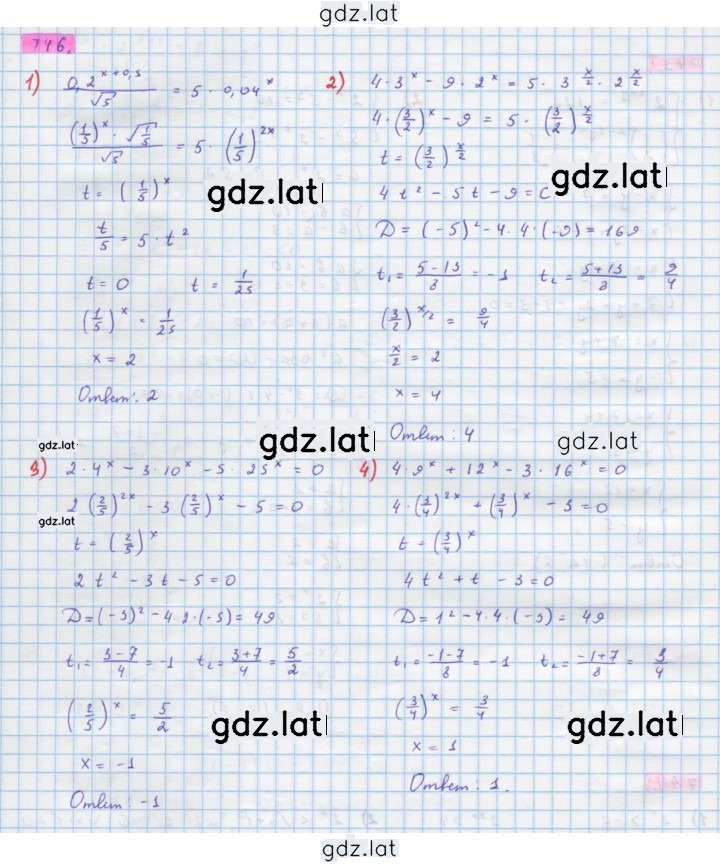 gdz.lat
746.
1) 0,2^(x+0,5) / √5 = 5 · 0,04^x
(1/5)^x · √(1/5) / √5 = 5 · (1/5)^(2x)
t = (1/5)^x
gdz.lat
t/5 = 5 · t²
t = 0   t = 1/25
(1/5)^x = 1/25
x = 2
Ответ: 2
2) 4 · 3^x − 9 · 2^x = 5 · 3^(x/2) · 2^(x/2)
4 · (3/2)^x − 9 = 5 · (3/2)^(x/2)
t = (3/2)^(x/2)
gdz.lat
4t² − 5t − 9 = 0
D = (−5)² − 4 · 4 · (−9) = 169
t₁ = (5−13)/8 = −1   t₂ = (5+13)/8 = 9/4
(3/2)^(x/2) = 9/4
x/2 = 2
x = 4
Ответ: 4
gdz.lat
gdz.lat
gdz.lat
3) 2 · 4^x − 3 · 10^x − 5 · 25^x = 0
2 (2/5)^(2x) − 3 (2/5)^x − 5 = 0
gdz.lat
t = (2/5)^x
2t² − 3t − 5 = 0
D = (−3)² − 4 · 2 · (−5) = 49
t₁ = (3−7)/4 = −1   t₂ = (3+7)/4 = 5/2
(2/5)^x = 5/2
gdz.lat
x = −1
Ответ: −1
4) 4 · 9^x + 12^x − 3 · 16^x = 0
4 · (3/4)^(2x) + (3/4)^x − 3 = 0
t = (3/4)^x
4t² + t − 3 = 0
D = 1² − 4 · 4 · (−3) = 49
t₁ = (−1−7)/8 = −1   t₂ = (−1+7)/8 = 3/4
(3/4)^x = 3/4
gdz.lat
x = 1
Ответ: 1.
gdz.lat